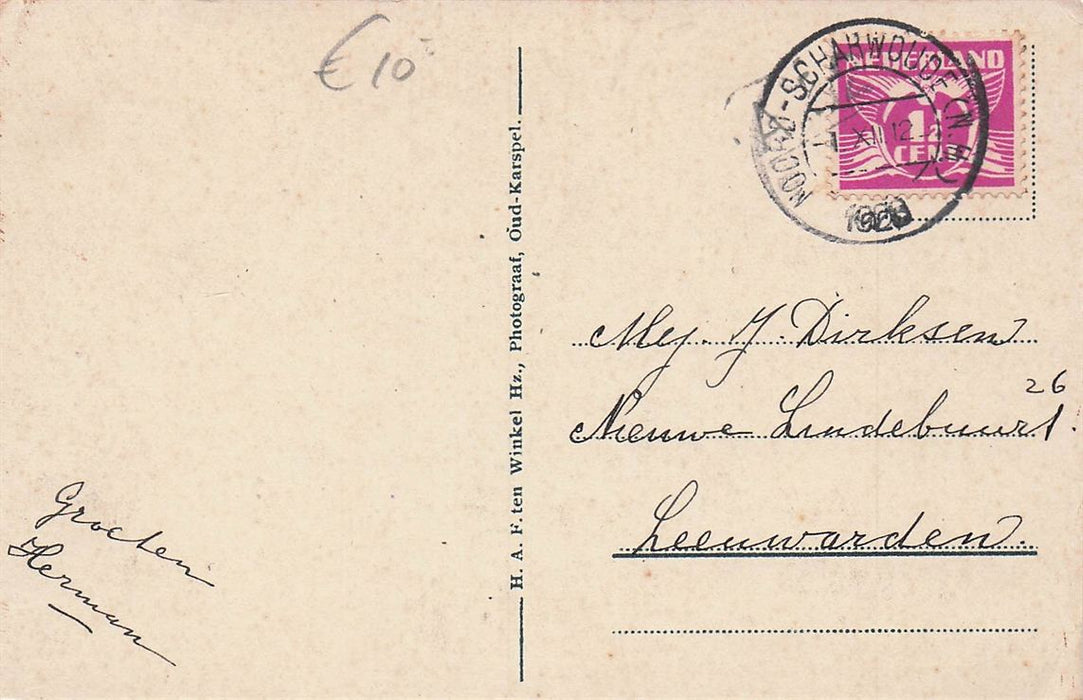 € 10
NOORD-SCHARWOUDE (N.H.)
XII 12
NEDERLAND
1½
CENT
H. A. F. ten Winkel Hz., Photograaf, Oud-Karspel.
Mej. J. Dirksen
Nieuwe Lindebuurt 26
Leeuwarden.
Groeten
Herman